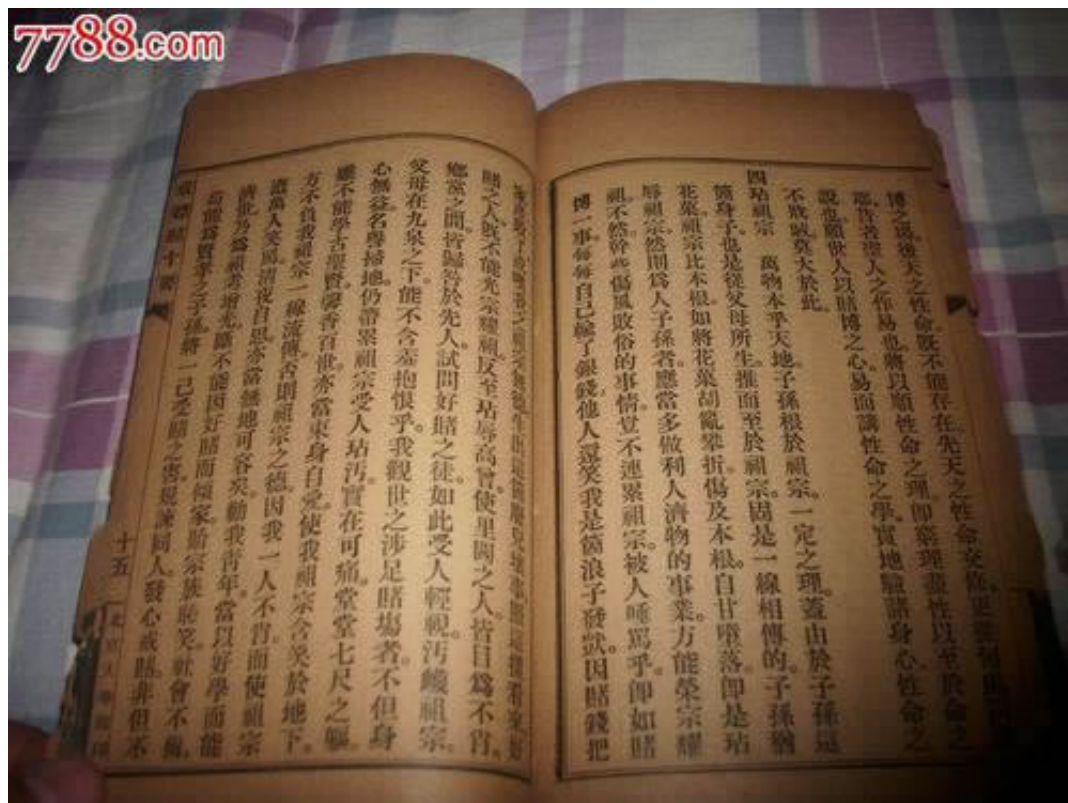 7788.com
博之誤後天之性命旣不能存在先天之性命
耶。昔者聖人之作易也。將以順性命之理。卽窮理盡性以至於命之
說也。願世人以賭博之心易而講性命之學實地驗諸身心性命之
不戕賊莫大於此。
四玷祖宗 萬物本乎天地。子孫根於祖宗。一定之理。蓋由於子孫這
箇身子。也是從父母所生。推而至於祖宗。固是一線相傳的。子孫猶
花菓。祖宗比本根。如將花菓胡亂攀折。傷及本根。自甘墮落。卽是玷
辱祖宗。然則爲人子孫者。應當多做利人濟物的事業。方能榮宗耀
祖。不然。幹些傷風敗俗的事情。豈不連累祖宗。被人唾罵乎。卽如賭
博一事。每每自己輸了銀錢。他人還笑我是箇浪子發獃。因賭錢把
賭之人。旣不能光宗耀祖。反至玷辱高曾。使里閭之人。皆目爲不肖。
鄉黨之間。皆歸咎於先人。試問好賭之徒。如此受人輕視。汚衊祖宗。
父母在九泉之下。能不含羞抱恨乎。我觀世之涉足賭場者。不但身
心無益。名譽掃地。仍帶累祖宗受人玷汚。實在可痛。堂堂七尺之軀。
雖不能學古聖賢。馨香百世。亦當束身自愛。使我祖宗含笑於地下。
方不負我祖宗一線流傳。否則祖宗之德。因我一人不肖。而使祖宗
遭萬人笑罵。清夜自思。亦當無地可容矣。勸我靑年。當以好學而能
濟世。乃爲祖考增光。斷不能因好賭而傾家。貽宗族恥笑。社會不齒。
苟能爲賢孝之子孫。將一己受賭之害。規諫同人。發心戒賭。非但不
十五